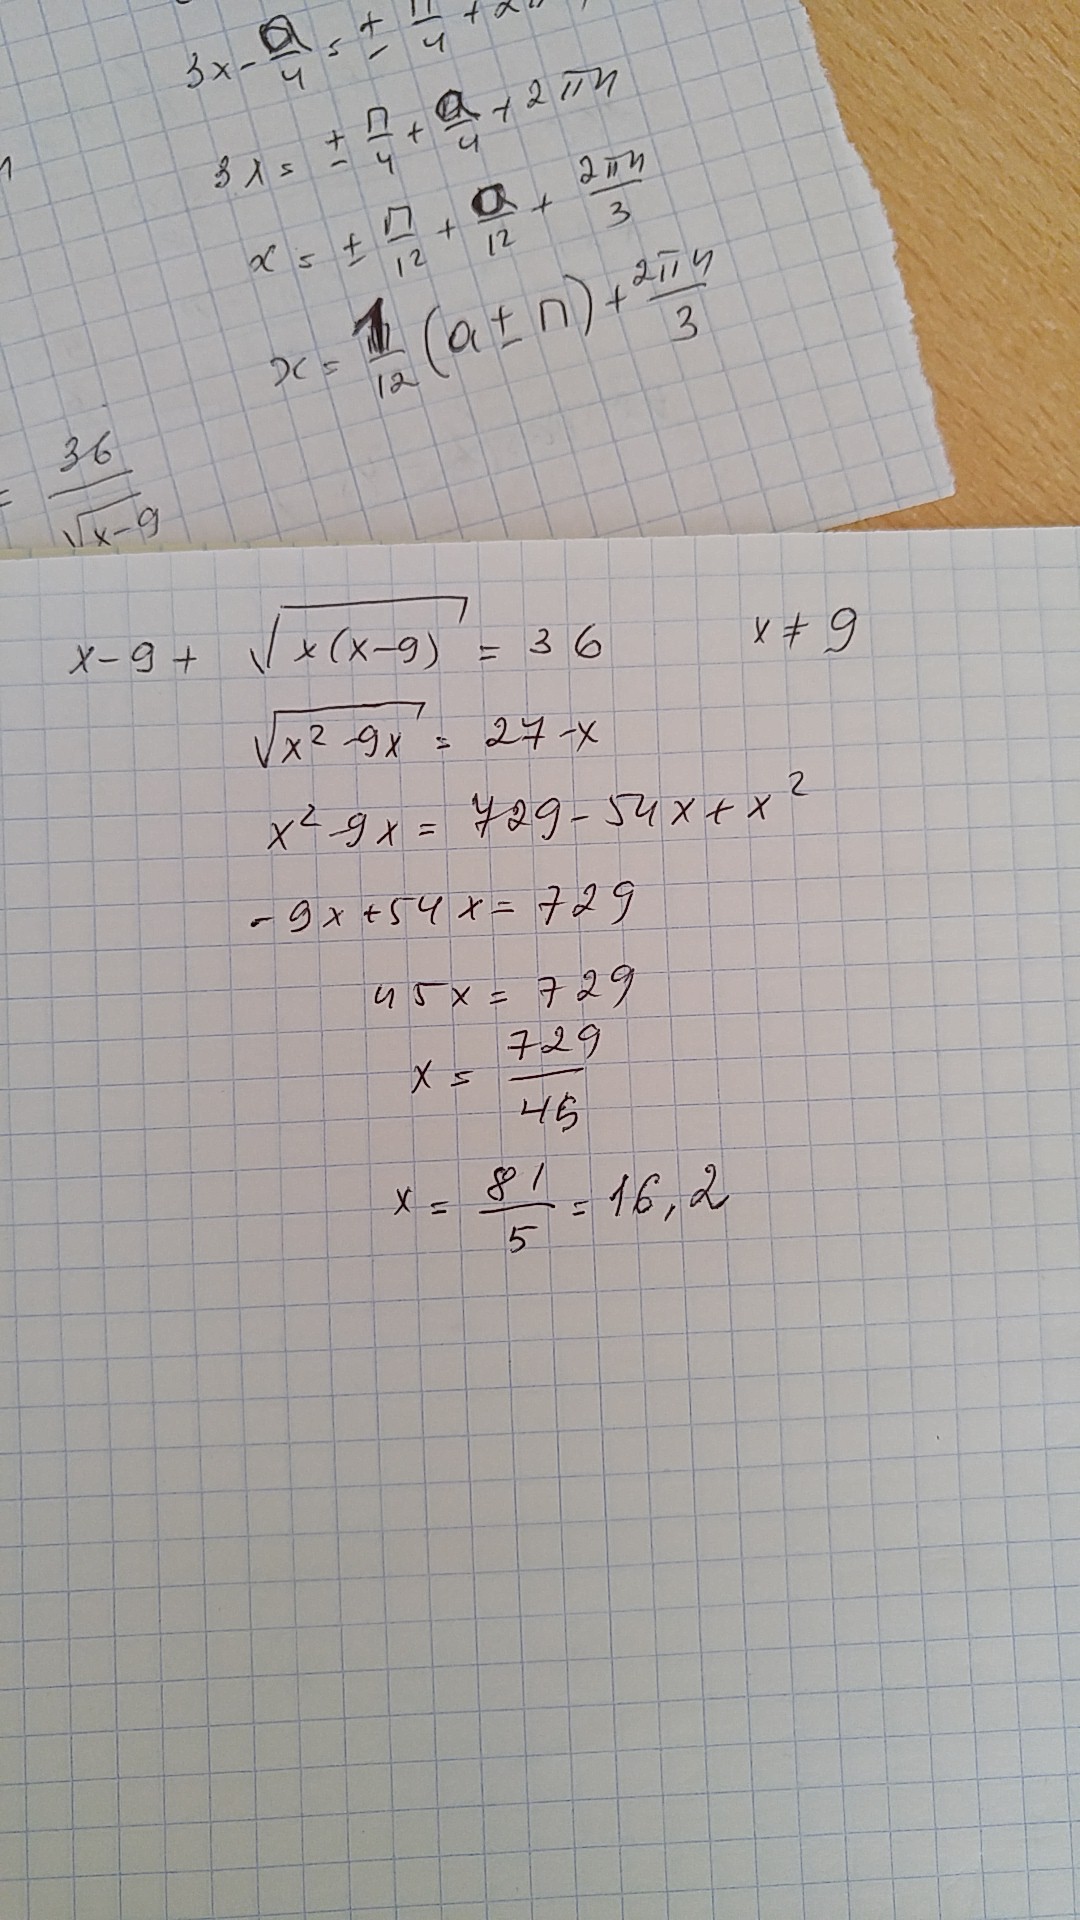 3x - a/4 = ± π/4 + 2π
3x = ± π/4 + a/4 + 2πn
x = ± π/12 + a/12 + 2πn/3
x = 1/12 (a ± π) + 2πn/3
= 36/√x-9
x - 9 + √x(x-9) = 36 x ≠ 9
√x² - 9x = 27 - x
x² - 9x = 729 - 54x + x²
- 9x + 54x = 729
45x = 729
x = 729/45
x = 81/5 = 16,2